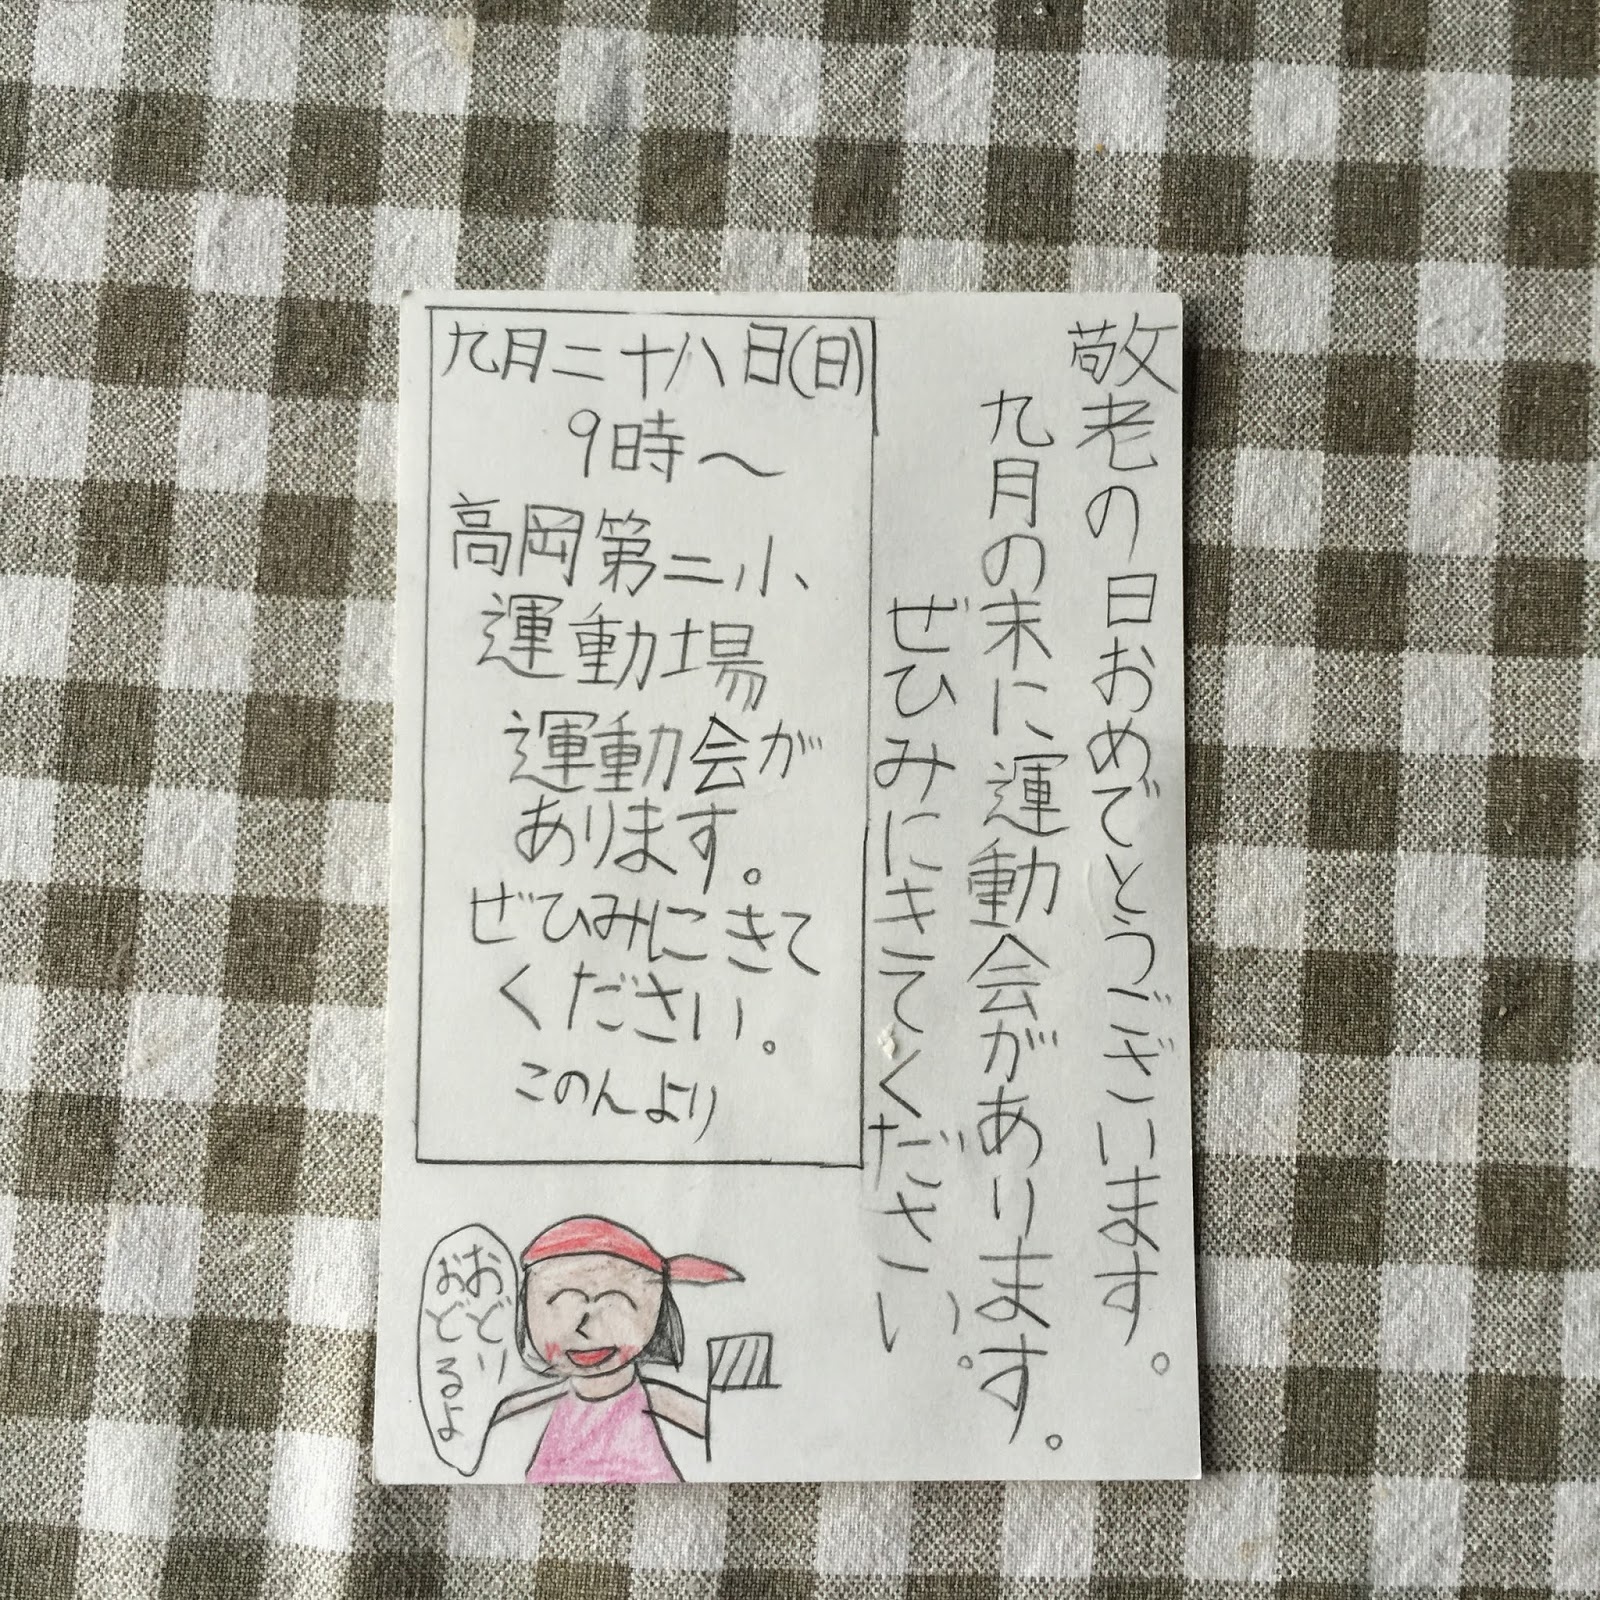 敬老の日おめでとうございます。
九月の末に運動会があります。
ぜひみにきてください。
九月二十八日(日)
9時〜
高岡第二小
運動場
運動会が
あります。
ぜひみにきて
ください。
このんより
おどり
おどるよ